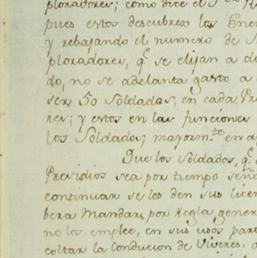 ploradores; como dice el S.
pues estos descubren las Ene
y rebajando el numero de S
ploradores, q.e se elijan a d
do, no se adelanta gasto a
ser 50 Soldados, en cada Pre
res; y estos en las funciones
los Soldados, mayorm.te en a
Que los Soldados, q.e
Presidios sea por tiempo seña
continuar se les den sus licen
bera Mandar, por Regla gener
no los emplee, en sus usos part
coltar la Conducion de Viveres, o